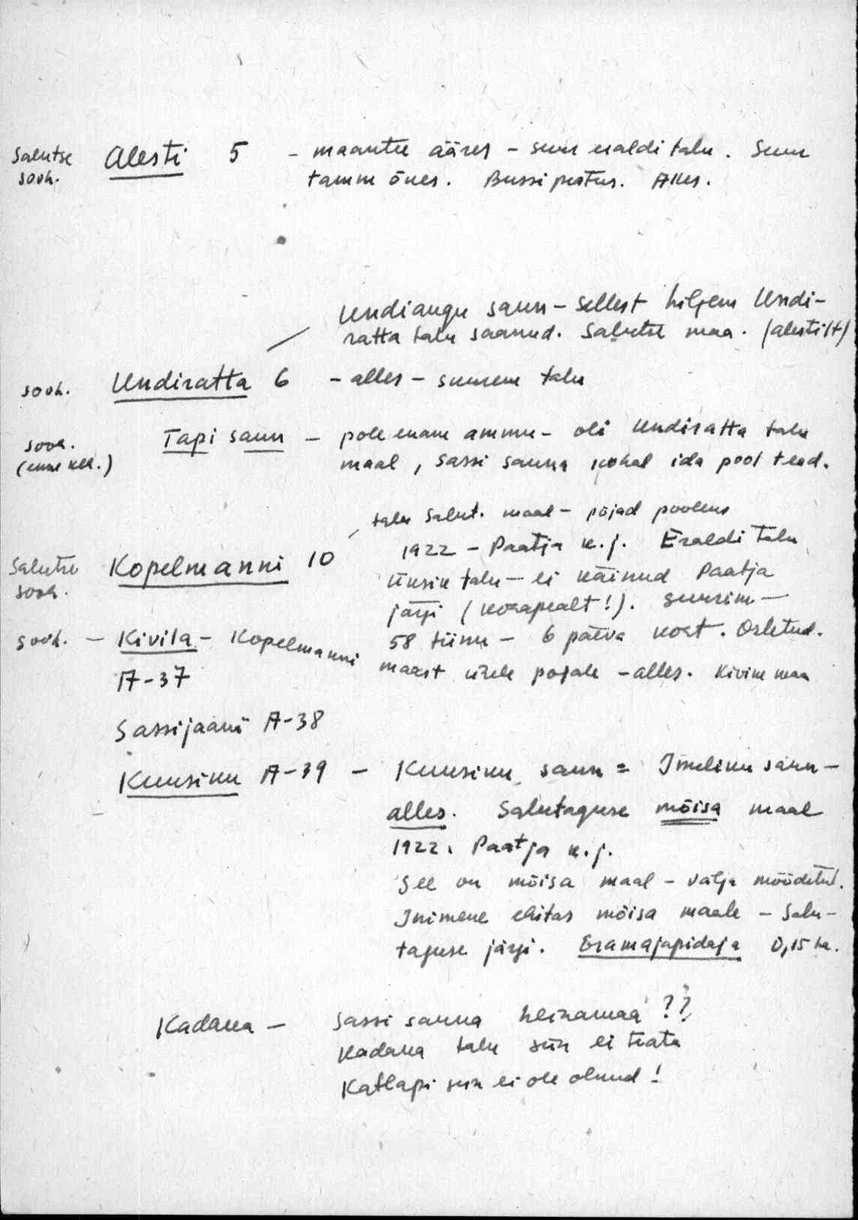 Salutse Alesti 5 - maantee ääres - suur eraldi talu. Suur
sooh. tamm õues. Bussipeatus. Alles.
Undiaugu saun - sellest hiljem Undi-
ratta talu saanud. Salutse maa. (alestilt)
sooh. Undiratta 6 - alles - suurem talu
sooh. Tapi saun - pole enam ammu - oli Undiratta talu
maal, Sassi sauna kohal ida pool teed.
talu Salut. maal - põjad pooleks
Salutse Kopelmanni 10 1922 - Paatja k.j. Eraldi talu
sooh. Üksik talu - ei käinud Paatja
järgi (korrapealt!). Suurim -
sooh. - Kivila - Kopelmanni 58 tiinu - 6 päeva kost. Ostetud.
A-37 maast ühele pojale - alles. Kivine maa
Sassijaani A-38
Kuusiku A-39 - Kuusiku saun = Imeliku saun -
alles. Salutaguse mõisa maal
1922. Paatja k.j.
See on mõisa maal - välja mõõdetud.
Inimene ehitas mõisa maale - Salu-
taguse järgi. Eramajapidaja 0,15 ha.
Kadaka - Sassi sauna heinamaa ??
Kadaka talu siin ei teata
Katlapi siin ei ole olnud!